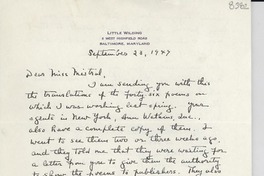 B382
LITTLE WILKINS
2 WEST HIGHFIELD ROAD
BALTIMORE, MARYLAND
September 23, 1947
Dear Miss Mistral,
I am sending you with this
the translations of the forty six poems on
which I was working last spring. Your
agents in New York, Ann Watkins Inc.,
also have a complete copy of them. I
went to see them two or three weeks ago,
and they told me that they were waiting for
a letter from you to give them the authority
to show the poems to publishers. They also